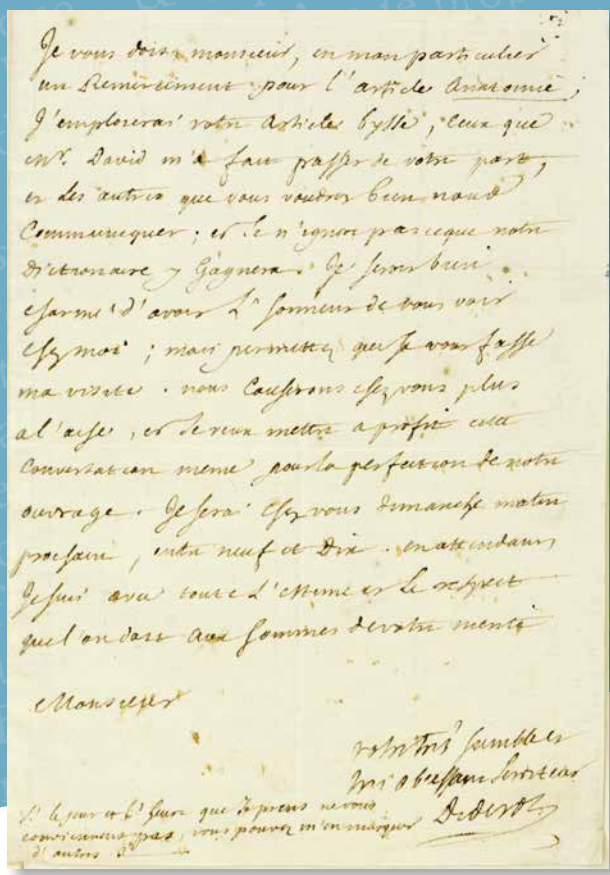 Je vous dois, monsieur, en mon particulier
un Remerciment pour l'article Anatomie;
J'emploierai votre article bysse, ceux que
mr. David m'a fait passer de votre part,
et les autres que vous voudrez bien nous
Communiquer; et Je n'ignore pas ce que notre
Dictionaire y Gagnera. Je serois bien
charmé d'avoir L'honneur de vous voir
chez moi; mais permettez que Je vous fasse
ma visite. nous Causerons chez vous plus
a l'aise, et Je veux mettre a profit cette
Conversation meme pour la perfection de notre
ouvrage. Je serai chez vous dimanche matin
prochain, entre neuf et Dix. en attendant,
Je suis avec toute L'estime et Le respect
que l'on doit aux hommes de votre merite
Monsieur
votre tres humble et
tres obeissant serviteur
Diderot
Si le jour et l'heure que Je prens ne vous
conviennent pas, vous pouvez m'en marquer
d'autres